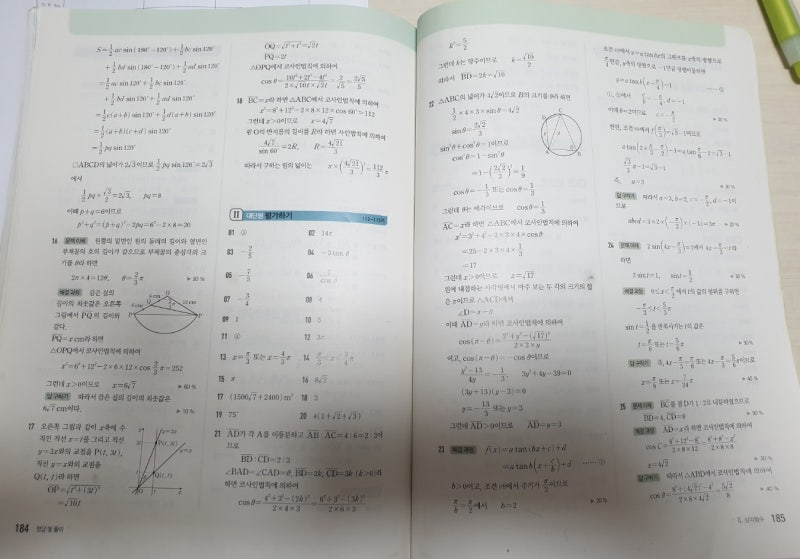 S=1/2 ac sin(180°-120°)+1/2 bc sin120°
+1/2 bd sin(180°-120°)+1/2 ad sin120°
=1/2 ac sin120°+1/2 bc sin120°
+1/2 bd sin120°+1/2 ad sin120°
=1/2 {c(a+b) sin120°+d(a+b) sin120°}
=1/2 (a+b)(c+d) sin120°
=1/2 pq sin120°
□ABCD의 넓이가 2√3이므로 1/2 pq sin120°=2√3
에서
1/2 pq×√3/2=2√3, pq=8
이때 p+q=6이므로
p²+q²=(p+q)²-2pq=6²-2×8=20
16 문제 이해 원뿔의 밑면인 원의 둘레의 길이와 옆면인
부채꼴의 호의 길이가 같으므로 부채꼴의 중심각의 크
기를 θ라 하면
2π×4=12θ, θ=2/3 π ▶ 30 %
해결 과정 감은 실의
길이의 최솟값은 오른쪽
그림에서 PQ의 길이와
같다.
PQ=x cm라 하면
△OPQ에서 코사인법칙에 의하여
x²=6²+12²-2×6×12×cos 2/3 π=252
그런데 x>0이므로 x=6√7 ▶ 60 %
답 구하기 따라서 감은 실의 길이의 최솟값은
6√7 cm이다. ▶ 10 %
17 오른쪽 그림과 같이 x축에 수
직인 직선 x=t를 그리고 직선
y=3x와의 교점을 P(t, 3t),
직선 y=x와의 교점을
Q(t, t)라 하면
OP=√t²+(3t)²
=√10t
184 정답 및 풀이
OQ=√t²+t²=√2t
PQ=2t
△OPQ에서 코사인법칙에 의하여
cosθ=(10t²+2t²-4t²)/(2×√10t×√2t)=2/√5=2√5/5
18 BC=x라 하면 △ABC에서 코사인법칙에 의하여
x²=8²+12²-2×8×12×cos60°=112
그런데 x>0이므로 x=4√7
원 O의 반지름의 길이를 R라 하면 사인법칙에 의하여
4√7/sin60°=2R, R=4√21/3
따라서 구하는 원의 넓이는 π×(4√21/3)²=112/3 π
II 대단원 평가하기
02 14π
04 -3tanθ
09 1
10 5
12 3π
13 x=π/3 또는 x=5/3 π
15 π
16 8√2
17 (1500√7+2400) m²
18 5
19 75°
20 4(1+√2+√3)
21 AD가 각 A를 이등분하고 AB : AC=4 : 6=2 : 3이
므로
BD : CD=2 : 3
∠BAD=∠CAD=θ, BD=2k, CD=3k (k>0)라
하면 코사인법칙에 의하여
cosθ=(4²+3²-(2k)²)/(2×4×3)=(6²+3²-(3k)²)/(2×6×3)
k²=5/2
그런데 k는 양수이므로 k=√10/2
따라서 BD=2k=√10
22 △ABC의 넓이가 4√2이므로 B의 크기를 θ라 하면
1/2×4×3×sinθ=4√2
sinθ=2√2/3
sin²θ+cos²θ=1이므로
cos²θ=1-sin²θ
=1-(2√2/3)²=1/9
cosθ=-1/3 또는 cosθ=1/3
그런데 θ는 예각이므로 cosθ=1/3
AC=x라 하면 △ABC에서 코사인법칙에 의하여
x²=3²+4²-2×3×4×cosθ
=25-2×3×4×1/3
=17
그런데 x>0이므로 x=√17
원에 내접하는 사각형에서 마주 보는 두 각의 크기의 합
은 π이므로 △ACD에서
∠D=π-θ
이때 AD=y라 하면 코사인법칙에 의하여
cos(π-θ)=(2²+y²-(√17)²)/(2×2×y)
이고, cos(π-θ)=-cosθ이므로
(y²-13)/4y=-1/3, 3y²+4y-39=0
(3y+13)(y-3)=0
y=-13/3 또는 y=3
그런데 AD>0이므로 AD=y=3
23 해결 과정 f(x)=a tan(bx+c)+d
=a tan b(x+c/b)+d ……①
b>0이고, 조건 ㈎에서 주기가 π/2이므로
π/b=π/2에서 b=2 ▶ 20 %
y=a tan b(x-π/4)-1
①, ②에서
c/b=-π/4, d=-1
이때 b=2이므로 c=-π/2
a tan(2×π/3-π/2)-1=a tan π/6-1=√3-1
√3/3 a-1=√3-1
즉, a=3
답 구하기 따라서 a=3, b=2, c=-π/2, d=-1이
므로
abcd=3×2×(-π/2)×(-1)=3π ▶ 20 %
24 문제 이해 2 sin(4x-π/3)=1에서 4x-π/3=t라
하면
2 sin t=1, sin t=1/2
해결 과정 0≤x<π/2에서 t의 값의 범위를 구하면
-π/3≤t<5/3 π
sin t=1/2을 만족시키는 t의 값은
t=π/6 또는 t=5/6 π
답 구하기 즉, 4x-π/3=π/6 또는 4x-π/3=5/6 π이므로
x=π/8 또는 x=7/24 π
25 문제 이해 BC를 점 D가 1 : 2로 내분하였으므로
BD=4, CD=8
해결 과정 AD=x라 하면 코사인법칙에 의하여
x=4√2
답 구하기 따라서 △ABD에서 코사인법칙에 의하여
cosθ=(8²+(4√2)²-4²)/(2×8×4√2)=5√2/8
II. 삼각함수 185